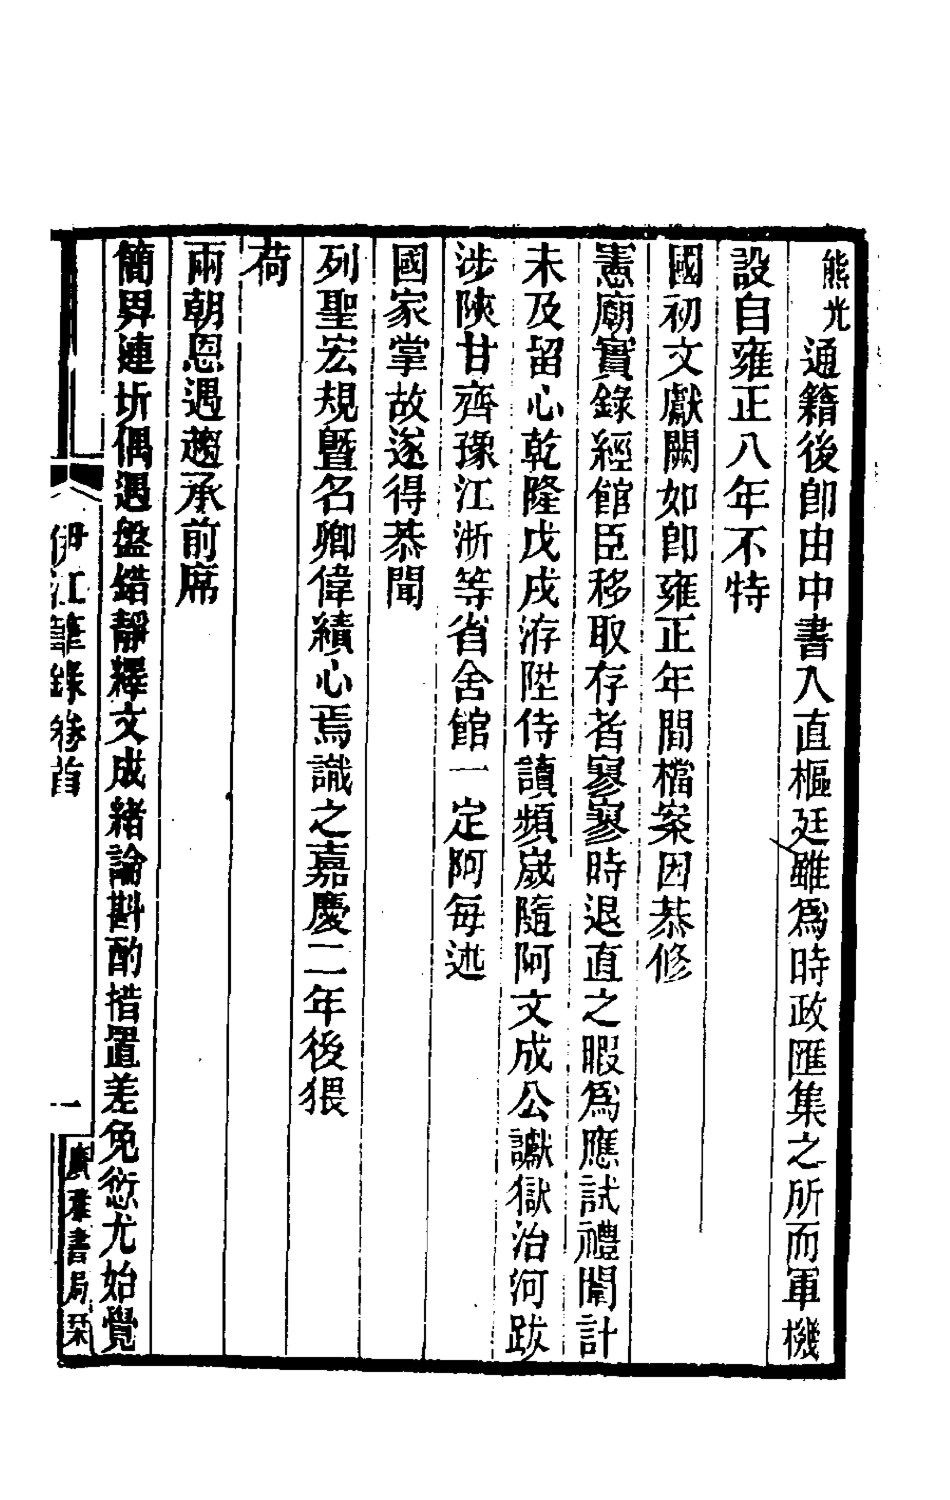 熊光通籍後卽由中書入直樞廷雖爲時政匯集之所而軍機
設自雍正八年不特
國初文獻闕如卽雍正年間檔案因恭修
憲廟實錄經館臣移取存者寥寥時退直之暇爲應試禮闈計
未及留心乾隆戊戌洊陞侍讀頻歲隨阿文成公讞獄治河跋
涉陝甘齊豫江浙等省舍館一定阿每述
國家掌故遂得恭聞
列聖宏規曁名卿偉績心焉識之嘉慶二年後猥
荷
兩朝恩遇趨承前席
簡畀連圻偶遇盤錯靜繹文成緒論斟酌措置差免愆尤始覺
伊江筆錄卷首
一
廣雅書局栞